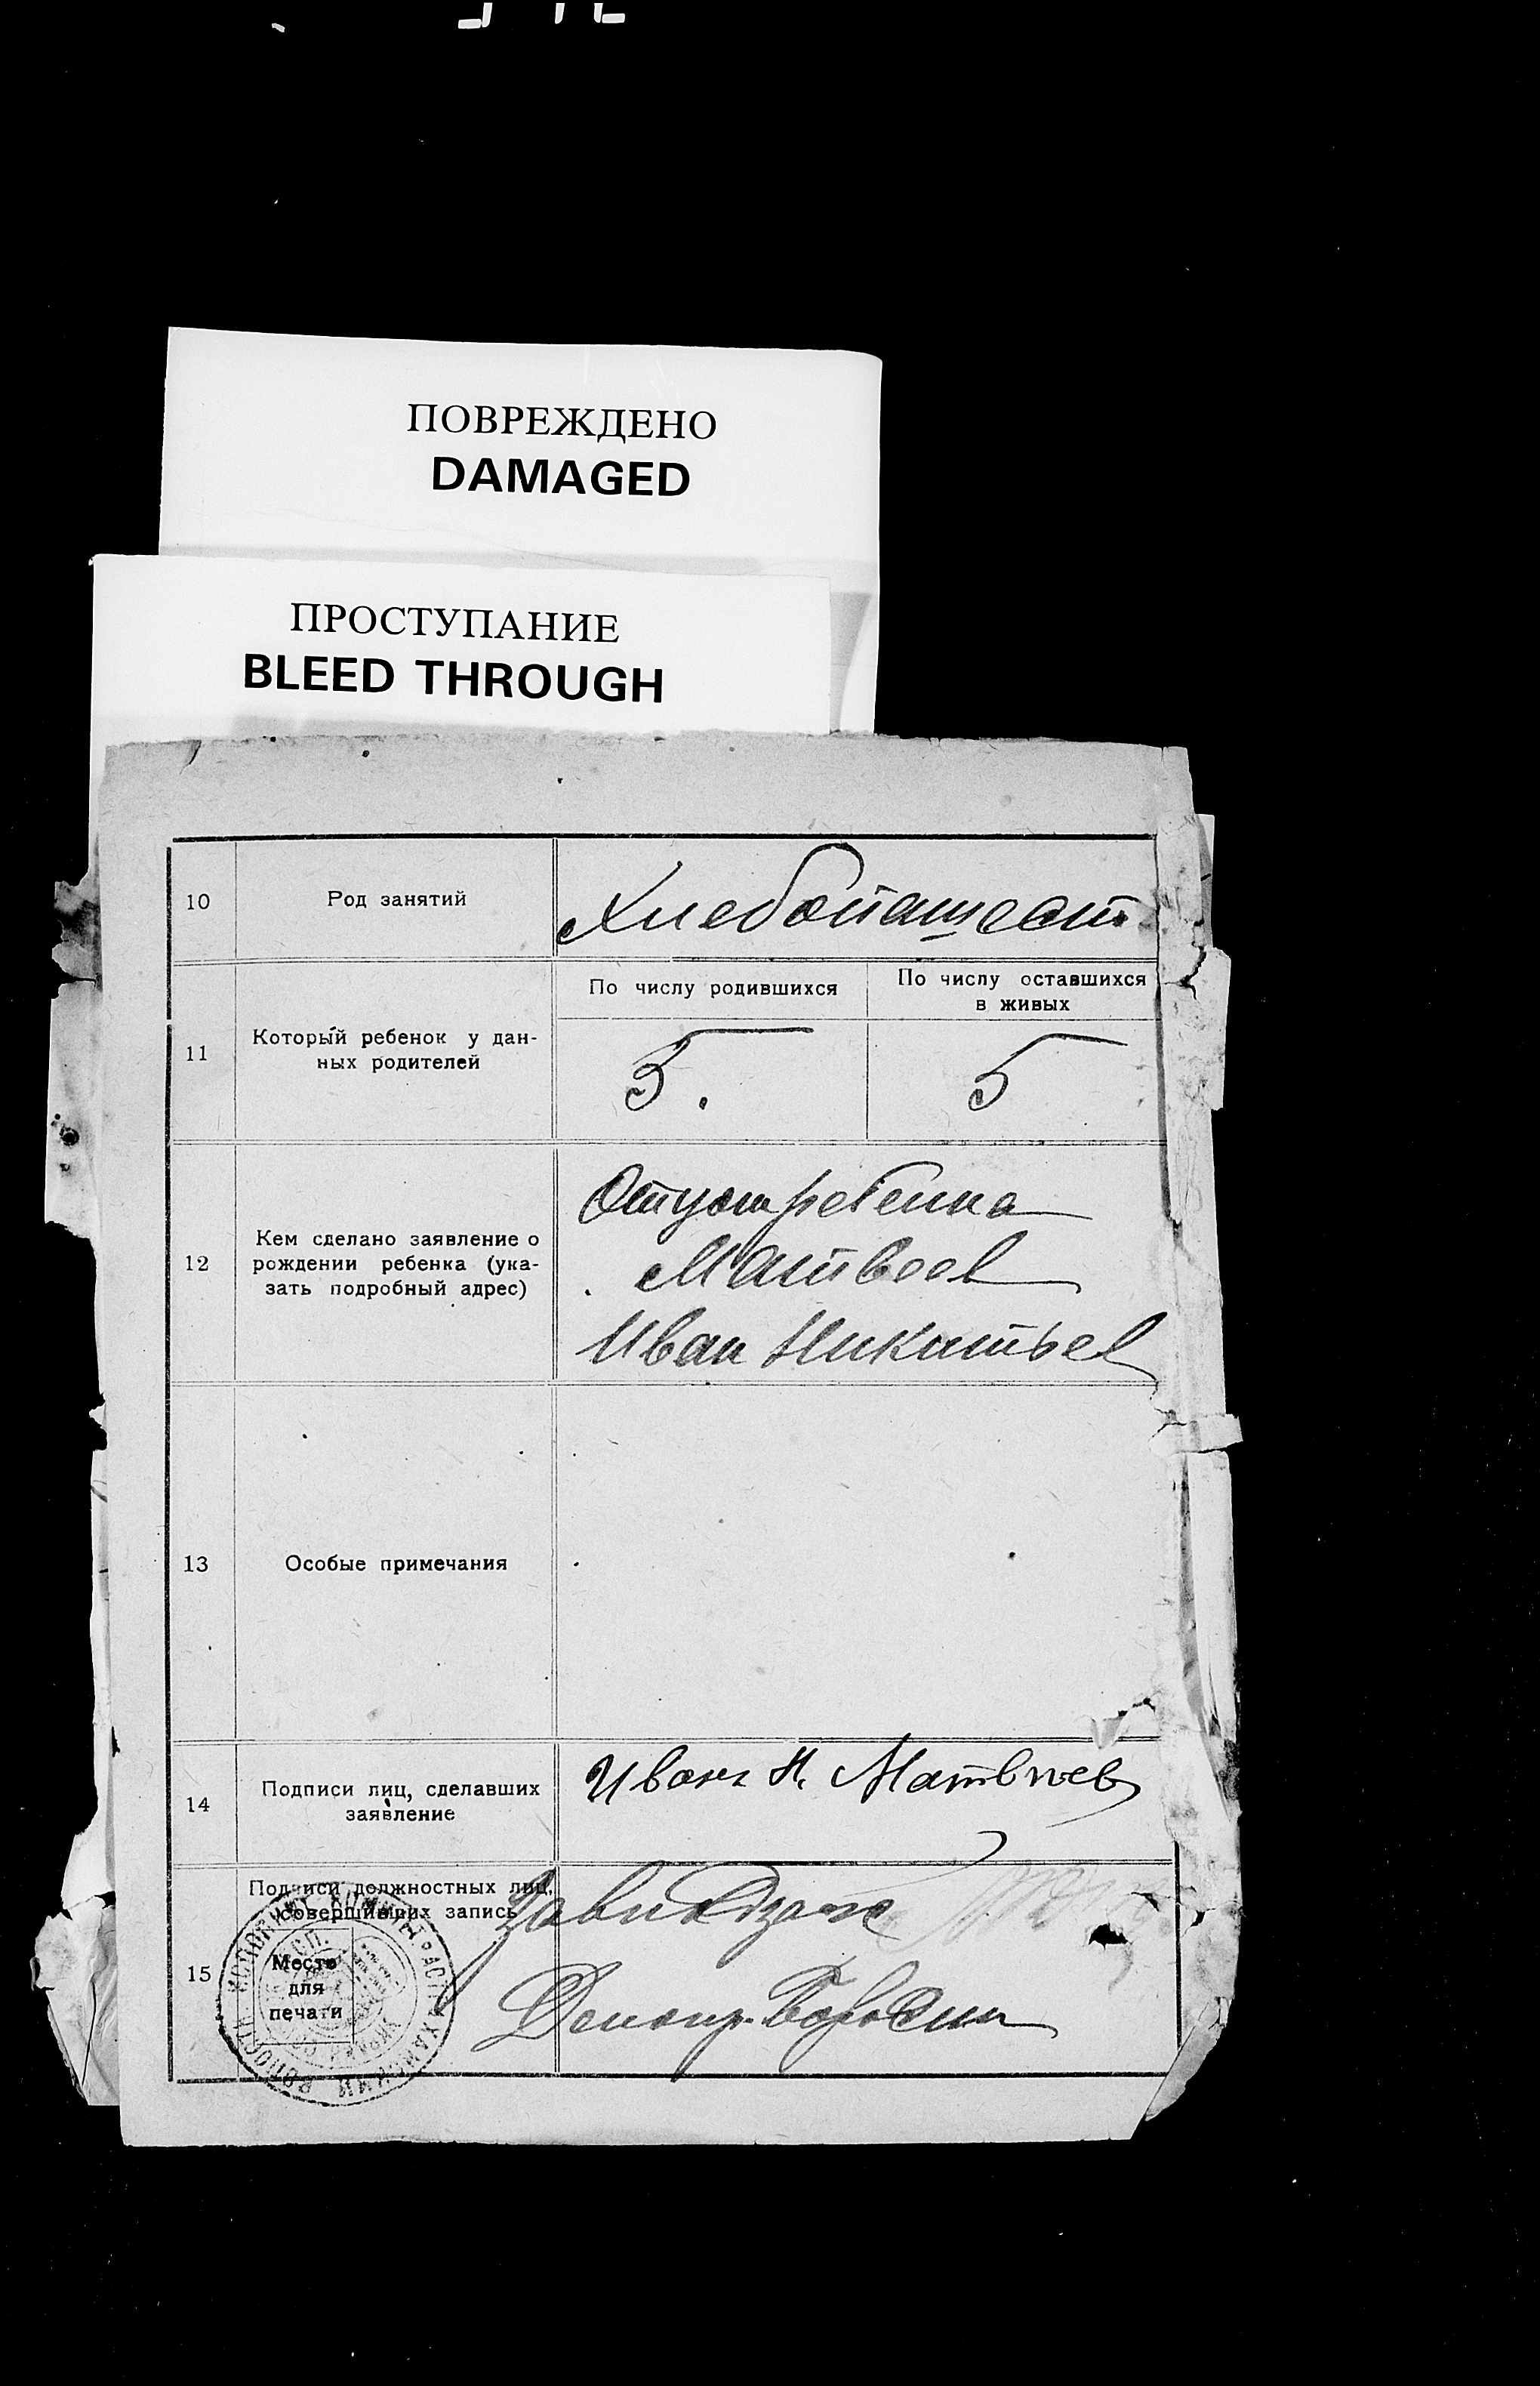 ПОВРЕЖДЕНО
DAMAGED
ПРОСТУПАНИЕ
BLEED THROUGH
10
Род занятий
Хлебопашест.
11
Который ребенок у дан-
ных родителей
По числу родившихся
5.
По числу оставшихся
в живых
5
12
Кем сделано заявление о
рождении ребенка (ука-
зать подробный адрес)
Отцом ребенка
Матвеев
Иван Никитьев
13
Особые примечания
14
Подписи лиц, сделавших
заявление
Иванъ Н. Матвѣев
15
Подписи должностных лиц,
совершивших запись
Место
для
печати
Делопр.